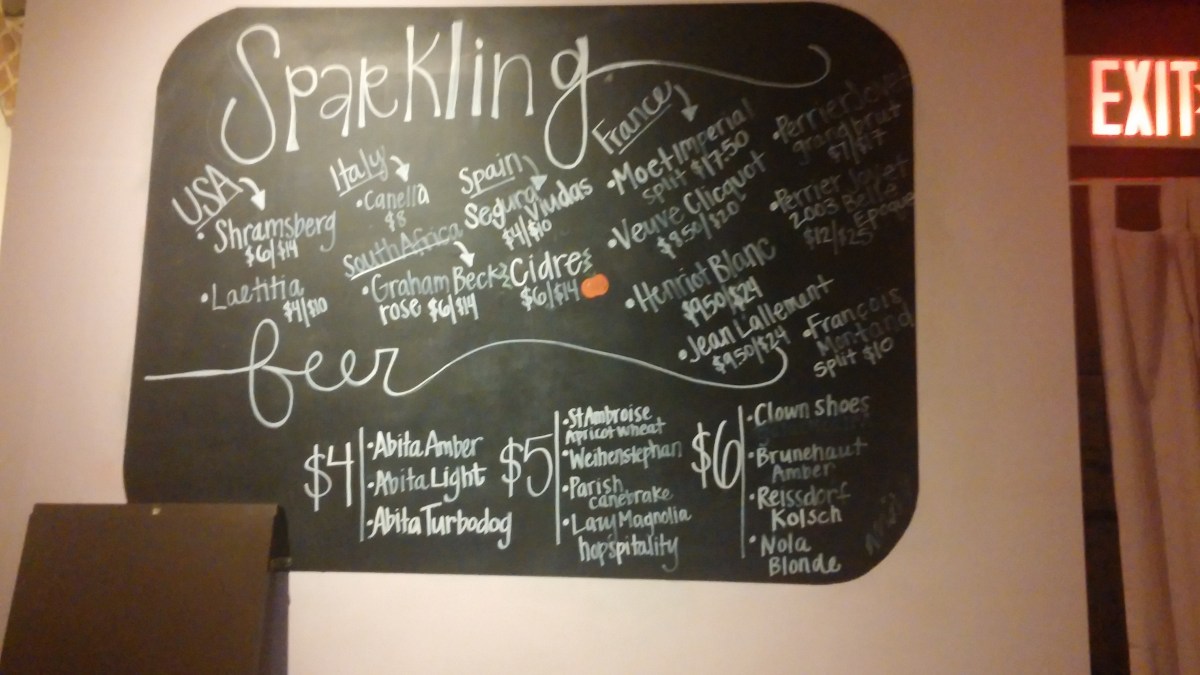 Sparkling
USA
• Shramsberg
$6/$14
• Laetitia
$4/$10
Italy
• Canella
$8
South Africa
• Graham Beck
rose $6/$14
Spain
Segura Viudas
$4/$10
Cidre
$6/$14
France
• Moet Imperial
split $17.50
• Veuve Clicquot
$8.50/$20
• Henriot Blanc
$9.50/$24
• Jean Lallement
$9.50/$24
• Perrier Jouet
grand brut
$7/$17
• Perrier Jouet
2003 Belle
Epoque
$12/$25
• François
Montand
split $10
beer
$4
• Abita Amber
• Abita Light
• Abita Turbodog
$5
• St Ambroise
Apricot wheat
• Weihenstephan
• Parish
canebrake
• Lazy Magnolia
hopspitality
$6
• Clown shoes
• Brunehaut
Amber
• Reissdorf
Kolsch
• Nola
Blonde
EXIT